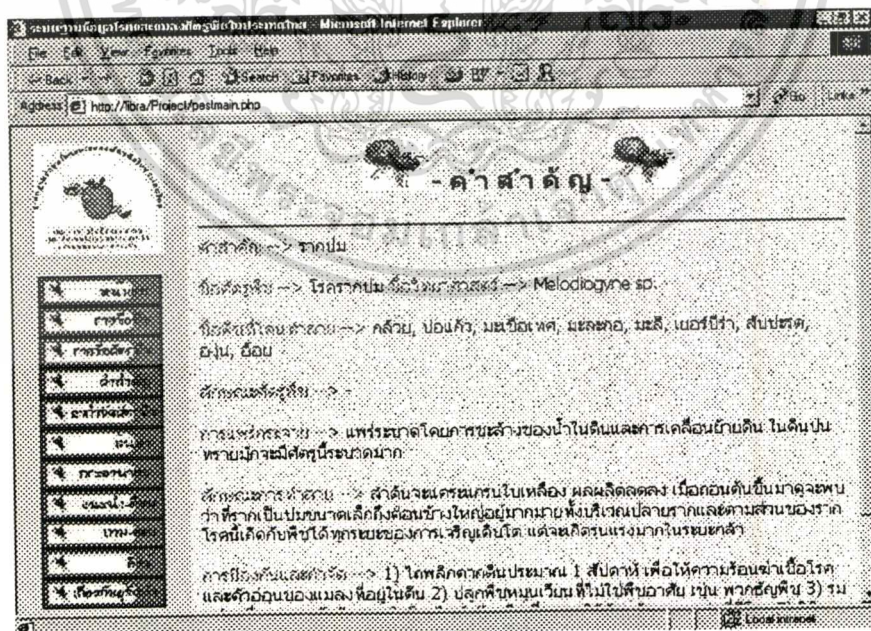 ระบบฐานข้อมูลโรคและแมลงศัตรูพืชในประเทศไทย - Microsoft Internet Explorer
File Edit View Favorites Tools Help
Back Search Favorites History
Address http://libra/Project/pestmain.php Go Links
- คำสำคัญ -
คำสำคัญ --> รากปม
ชื่อศัตรูพืช --> โรครากปม ชื่อวิทยาศาสตร์ --> Melodiogyne sp.
ชื่อพืชที่โดนทำลาย --> กล้วย, ปอแก้ว, มะเขือเทศ, มะละกอ, มะลิ, เยอร์บีร่า, สับปะรด,
องุ่น, อ้อย
ลักษณะศัตรูพืช --> -
การแพร่กระจาย --> แพร่ระบาดโดยการชะล้างของน้ำในดินและการเคลื่อนย้ายดิน ในดินปน
ทรายมักจะมีศัตรูนี้ระบาดมาก
ลักษณะการทำลาย --> ลำต้นจะแคระแกรนใบเหลือง ผลผลิตลดลง เมื่อถอนต้นขึ้นมาดูจะพบ
ว่าที่รากเป็นปมขนาดเล็กถึงค่อนข้างใหญ่อยู่มากมาย ทั้งบริเวณปลายรากและตามส่วนของราก
โรคนี้เกิดกับพืชได้ทุกระยะของการเจริญเติบโต แต่จะเกิดรุนแรงมากในระยะกล้า
การป้องกันและกำจัด --> 1) ไถพลิกตากดินประมาณ 1 สัปดาห์ เพื่อให้ความร้อนฆ่าเชื้อโรค
และตัวอ่อนของแมลงที่อยู่ในดิน 2) ปลูกพืชหมุนเวียนที่ไม่ใช่พืชอาศัย เช่น พวกธัญพืช 3) รม
Local intranet